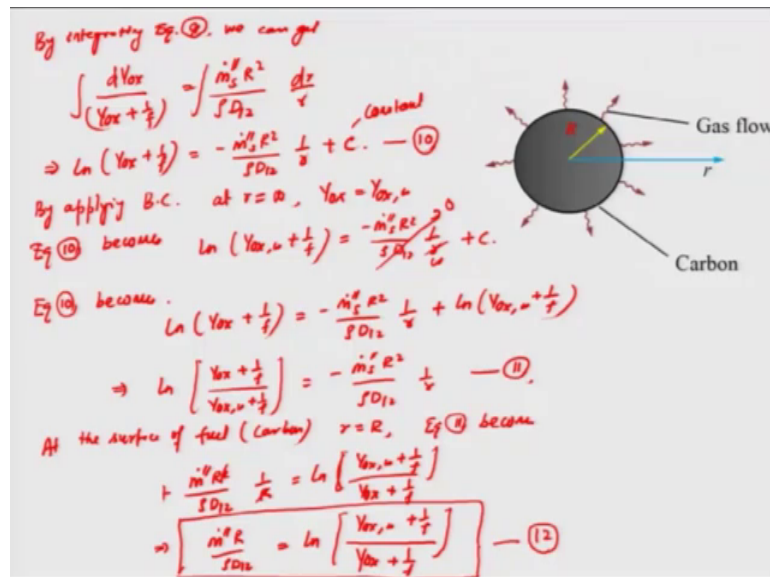 By integrating Eq. ⑨, we can get
∫ dYox / (Yox + 1/f) = ∫ ṁs″ R² / ρD12 dr / r
⇒ ln (Yox + 1/f) = - ṁs″ R² / ρD12 1/r + C. — ⑩
constant
By applying B.C. at r = ∞, Yox = Yox,∞
Eq ⑩ become ln (Yox,∞ + 1/f) = - ṁs″ R² / ρD12 1/r + C.
0
∞
Eq ⑩ become.
ln (Yox + 1/f) = - ṁs″ R² / ρD12 1/r + ln (Yox,∞ + 1/f)
⇒ ln [ Yox + 1/f / Yox,∞ + 1/f ] = - ṁs″ R² / ρD12 1/r — ⑪.
At the surface of fuel (Carbon) r = R, Eq ⑪ become
+ ṁ″ R² / ρD12 1/R = ln [ Yox,∞ + 1/f / Yox + 1/f ]
⇒ ṁ″ R / ρD12 = ln [ Yox,∞ + 1/f / Yox + 1/f ] — ⑫
R
Gas flow
r
Carbon